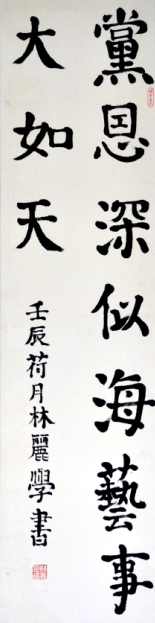 黨恩深似海藝事
大如天
壬辰荷月林麗學書